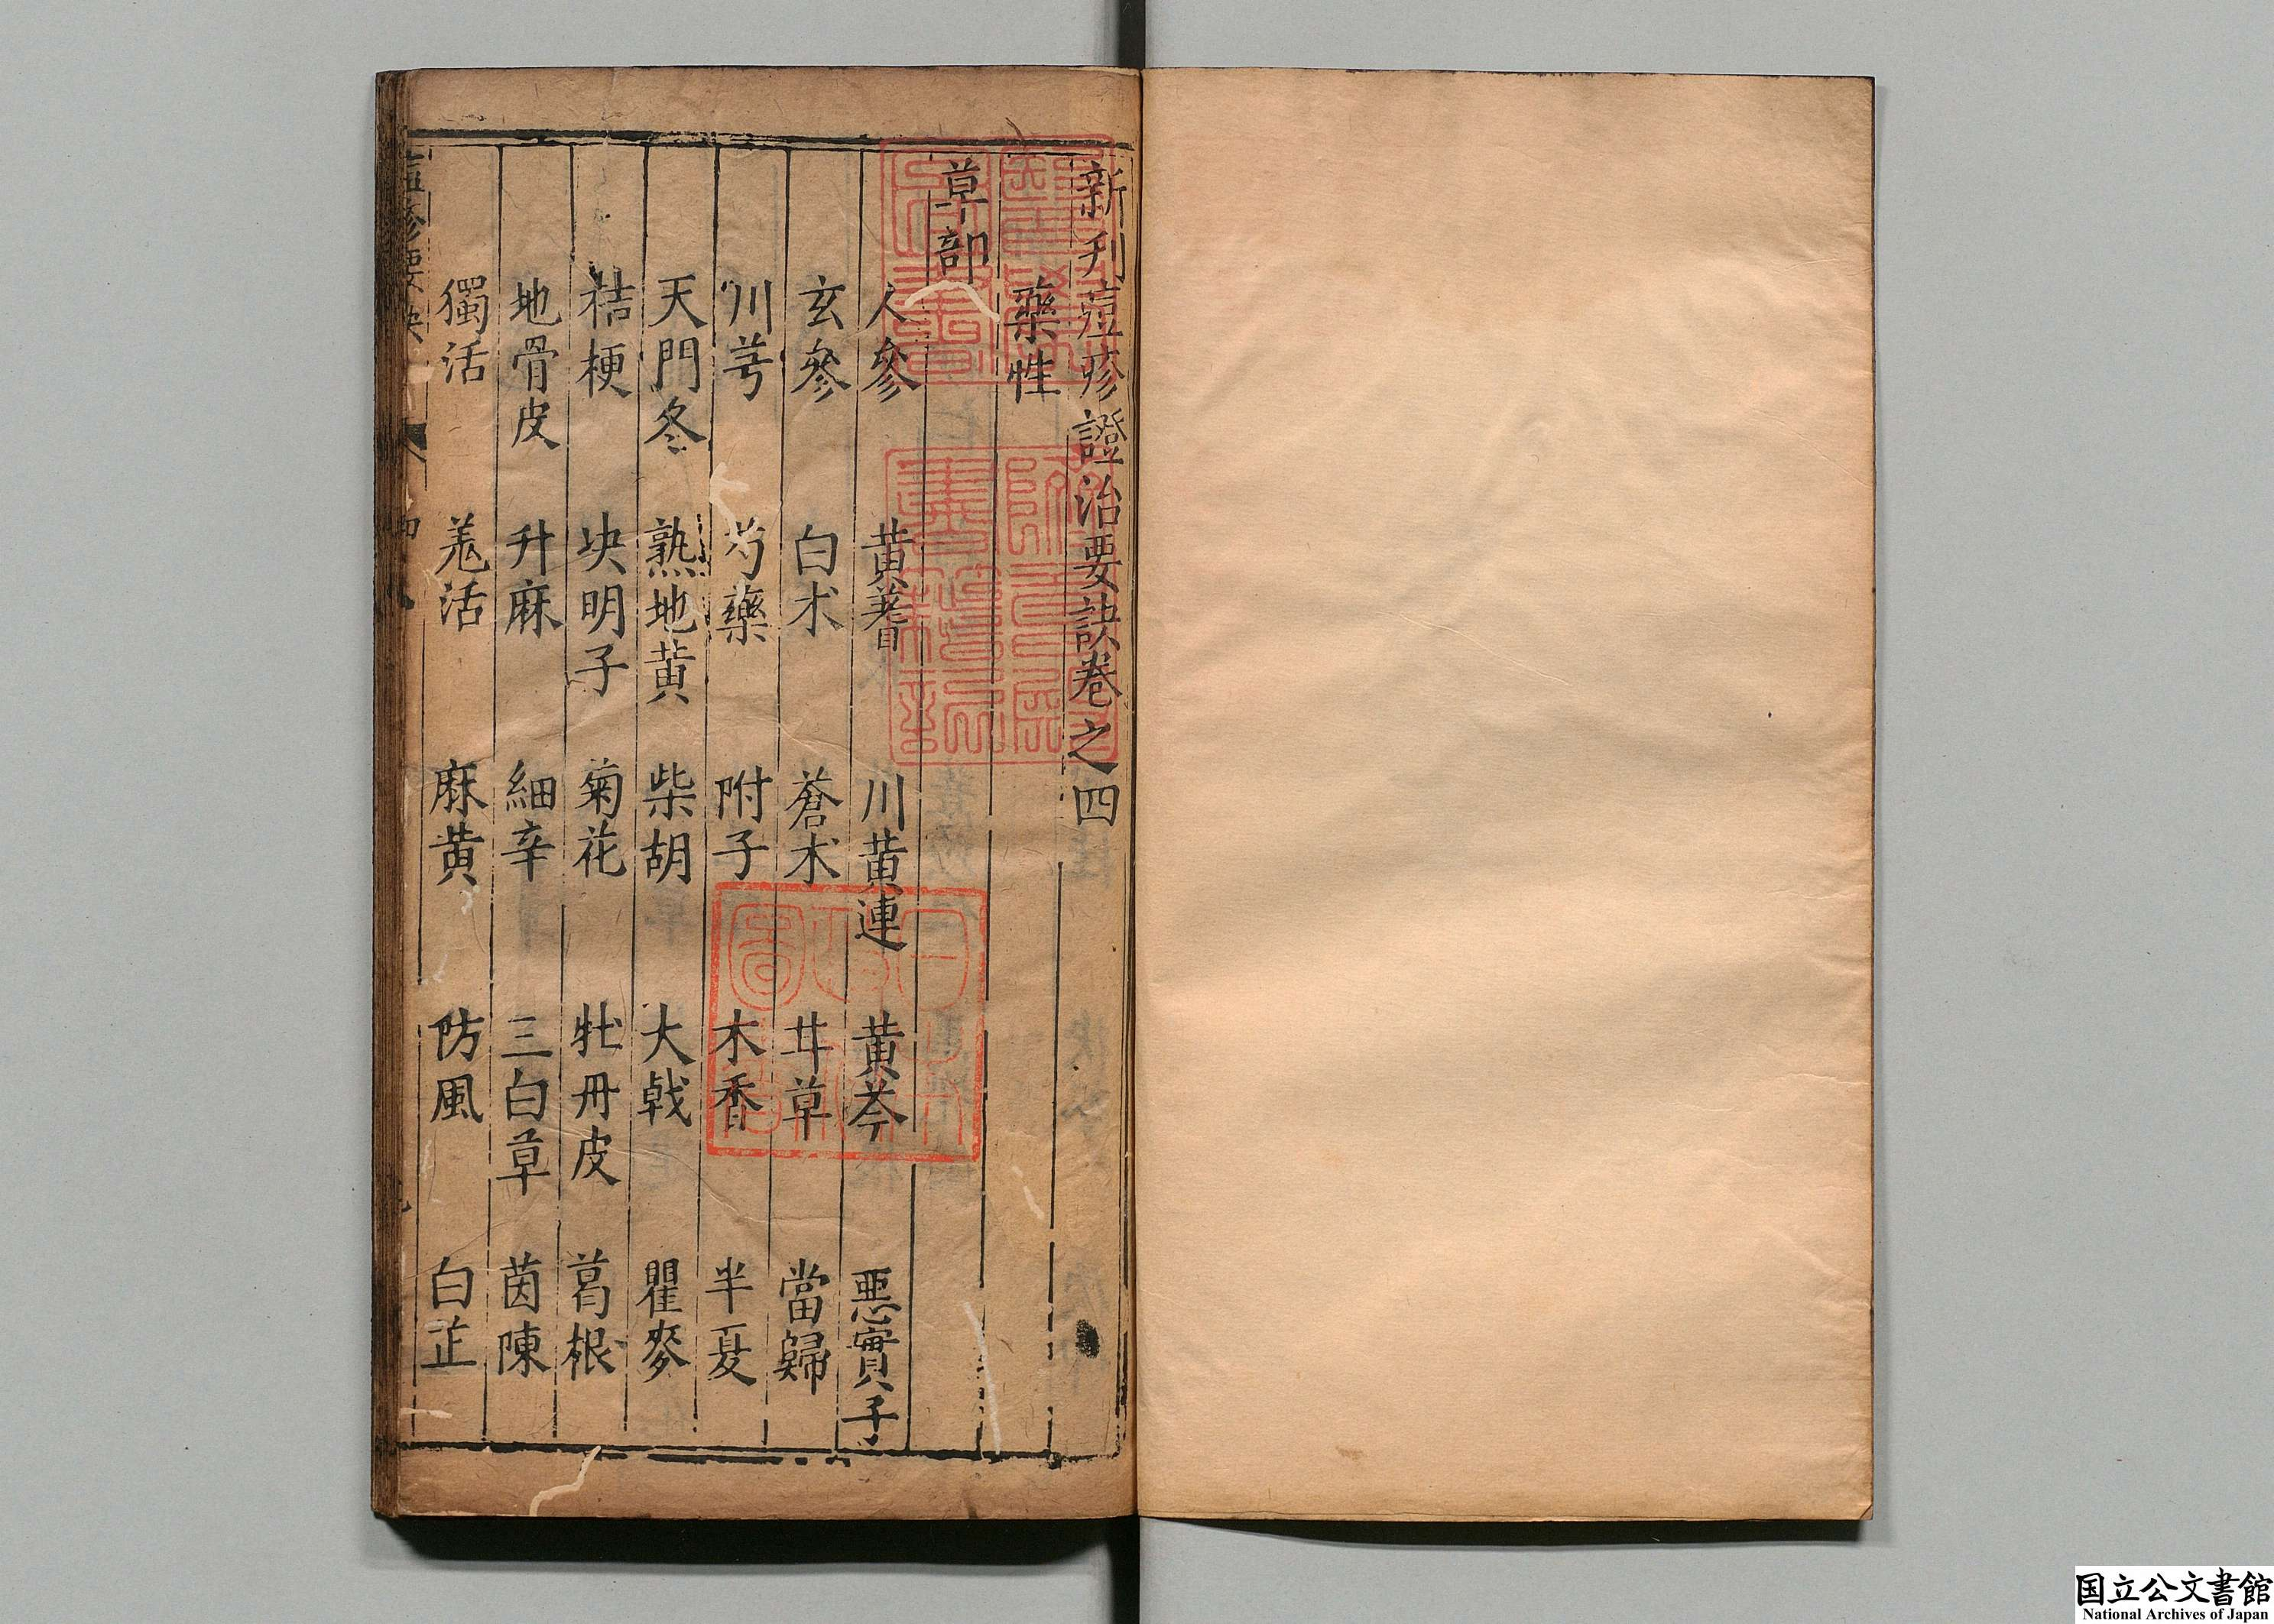 新刋痘疹證治要訣卷之四
藥性
草部
人參 黄蓍 川黄連 黄芩 惡實子
玄參 白朮 蒼朮 甘草 當歸
川芎 芍藥 附子 木香 半夏
天門冬 熟地黄 柴胡 大戟 瞿麥
桔梗 决明子 菊花 牡丹皮 葛根
地骨皮 升麻 細辛 三白草 茵陳
獨活 羗活 麻黄 防風 白芷
国立公文書館
National Archives of Japan